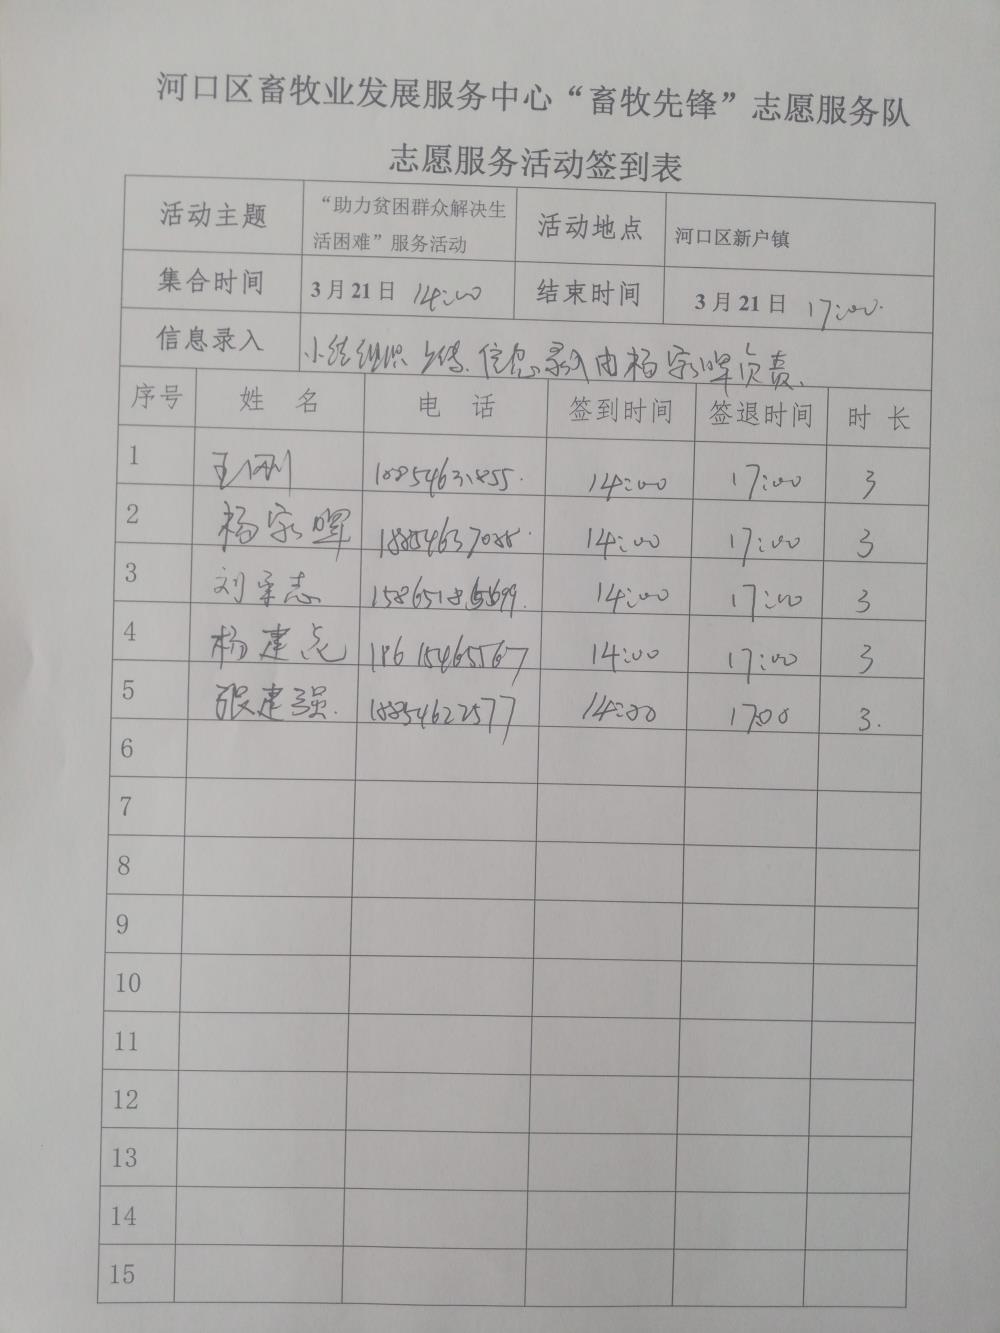 河口区畜牧业发展服务中心“畜牧先锋”志愿服务队
志愿服务活动签到表
活动主题 “助力贫困群众解决生 活动地点 河口区新户镇
活困难”服务活动
集合时间 3月21日 14:00 结束时间 3月21日 17:00
信息录入 组织 信息录入由杨家晖负责.
序号 姓 名 电 话 签到时间 签退时间 时 长
1 14:00 17:00 3
2 杨家晖 14:00 17:00 3
3 14:00 17:00 3
4 18615465567 14:00 17:00 3
5 张建强. 18854622577 14:00 17:00 3.
6
7
8
9
10
11
12
13
14
15